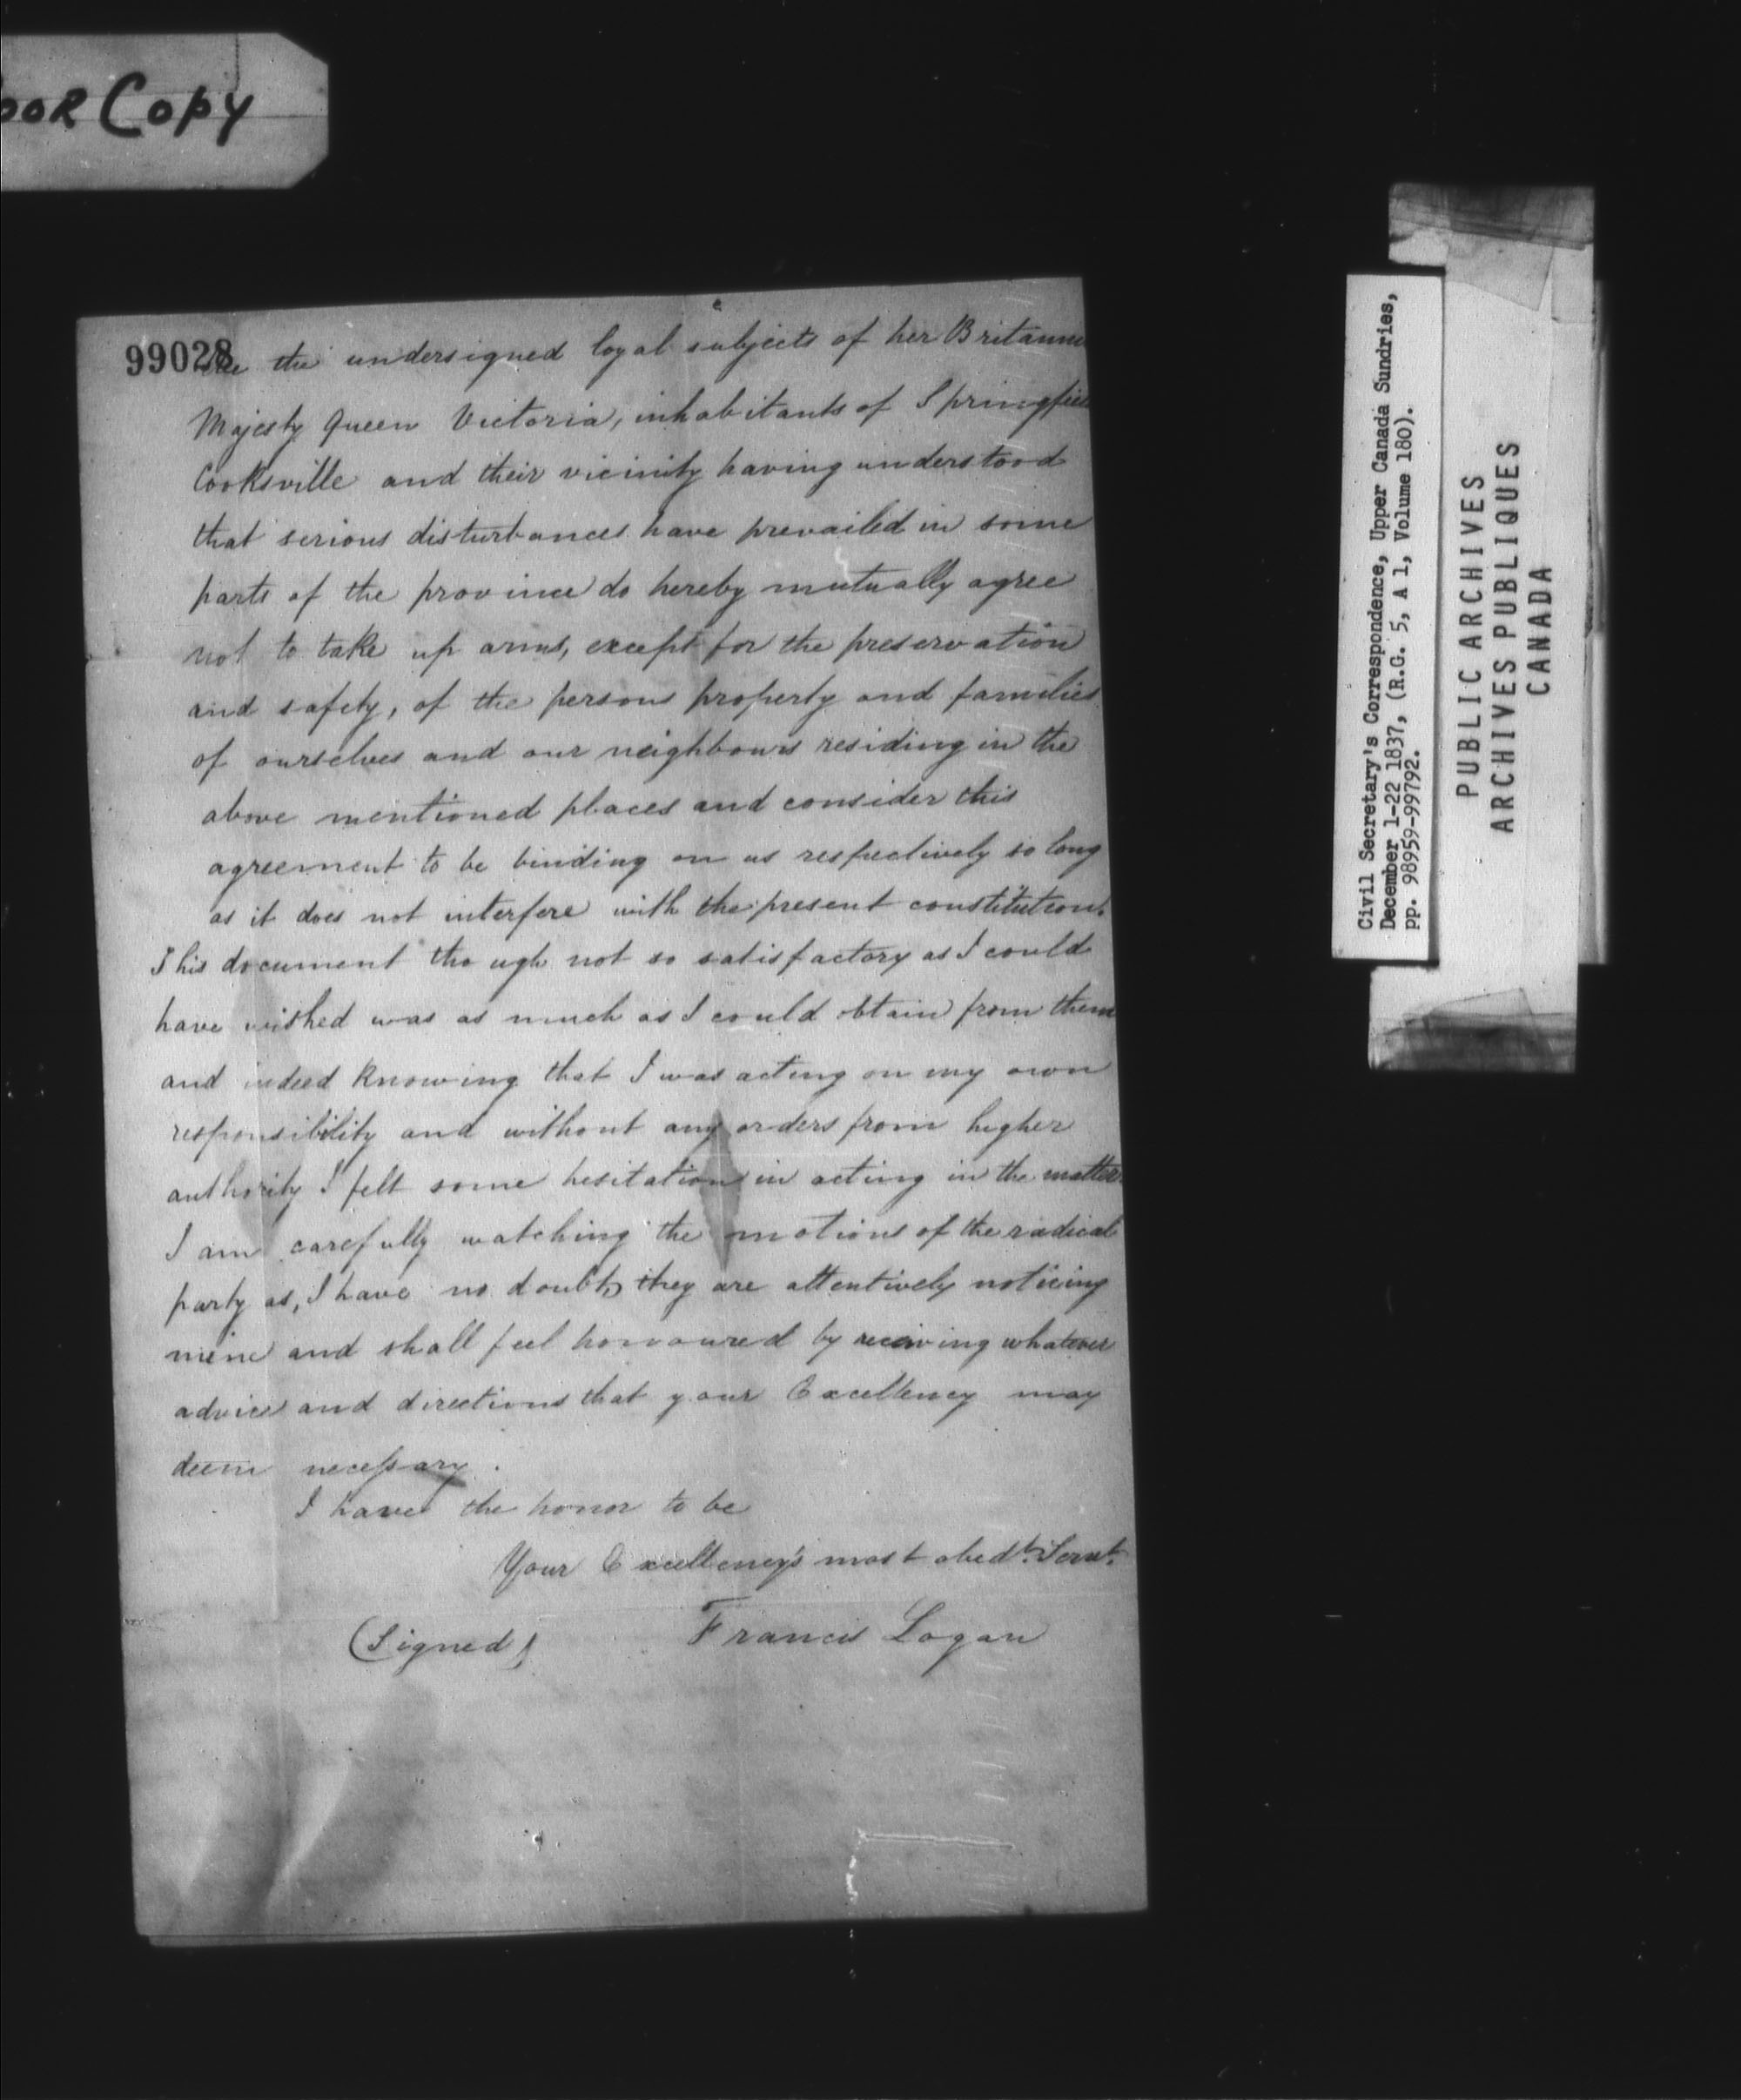 Copy
99028
We the undersigned loyal subjects of her Britannic
Majesty Queen Victoria, inhabitants of Springfield
Cooksville and their vicinity having understood
that serious disturbances have prevailed in some
parts of the province do hereby mutually agree
not to take up arms, except for the preservation
and safety, of the persons property and families
of ourselves and our neighbours residing in the
above mentioned places and consider this
agreement to be binding on us respectively so long
as it does not interfere with the present constitution.
This document though not so satisfactory as I could
have wished was as much as I could obtain from them
and indeed knowing that I was acting on my own
responsibility and without any orders from higher
authority I felt some hesitation in acting in the matter
I am carefully watching the motions of the radical
party as, I have no doubt, they are attentively noticing
mine and shall feel honoured by receiving whatever
advice and directions that your Excellency may
deem necessary.
I have the honor to be
Your Excellency's most obedt. Servt.
(Signed) Francis Logan
Civil Secretary's Correspondence, Upper Canada Sundries,
December 1-22 1837, (R.G. 5, A 1, Volume 180).
pp. 98959-99792.
PUBLIC ARCHIVES
ARCHIVES PUBLIQUES
CANADA